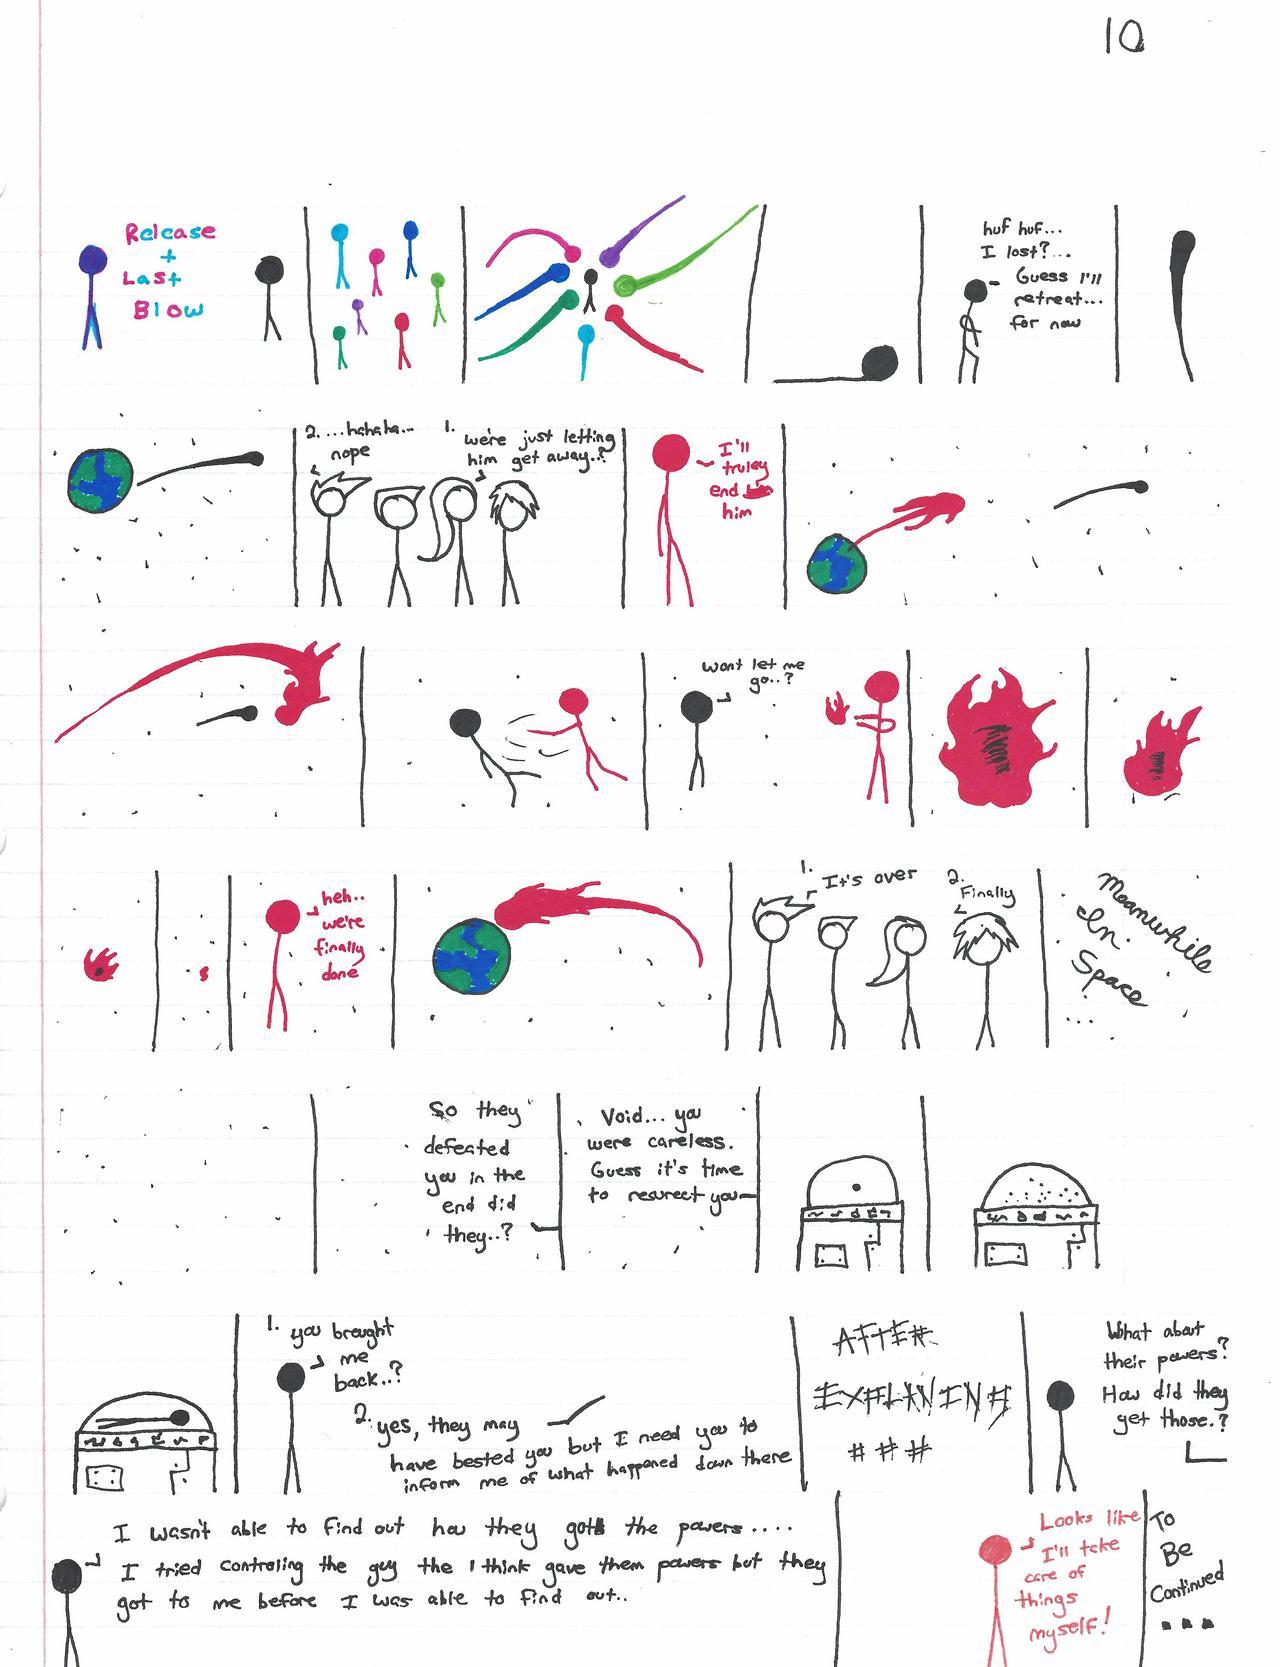 10
Release
+
Last
Blow
huf huf...
I lost?...
Guess I'll
retreat...
for now
2. ...hahaha...
nope
1. we're just letting
him get away..?
I'll
truley
end
him
Wont let me
go..?
heh..
we're
finally
done
1. It's over
2. Finally
Meanwhile
In
Space
...
So they
defeated
you in the
end did
they..?
Void... you
were careless.
Guess it's time
to resurect you
1. you brought
me
back..?
2. yes, they may
have bested you but I need you to
inform me of what happened down there
AFTER
EXPLAINING
###
What about
their powers?
How did they
get those.?
I wasn't able to find out how they got the powers....
I tried controling the guy the I think gave them powers but they
got to me before I was able to find out..
Looks like
I'll take
care of
things
myself!
To
Be
Continued
...